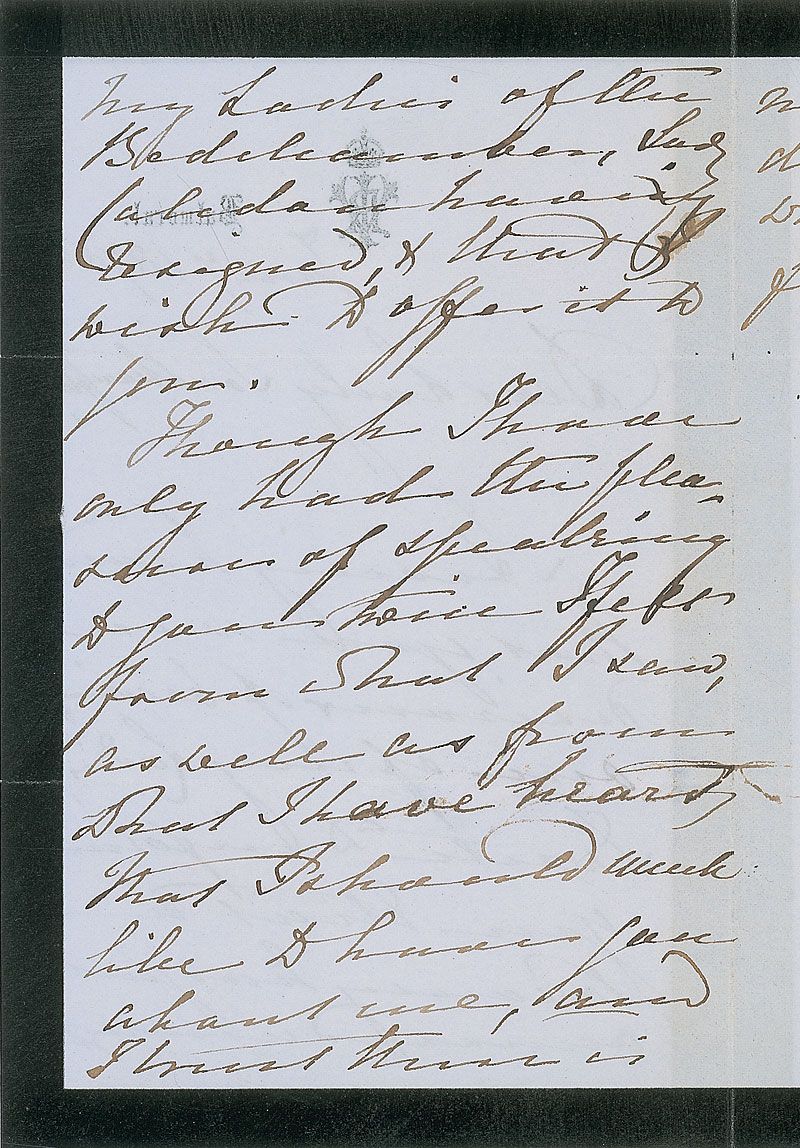 my Ladies of the
Bedchamber, Lady
Caledon having
resigned, & that I
wish to offer it to
you.
Though I have
only had the plea-
sure of speaking
to you twice I feel
from what I saw,
as well as from
what I have heard,
that I should much
like to have you
about me, and
I trust there is
Balmoral